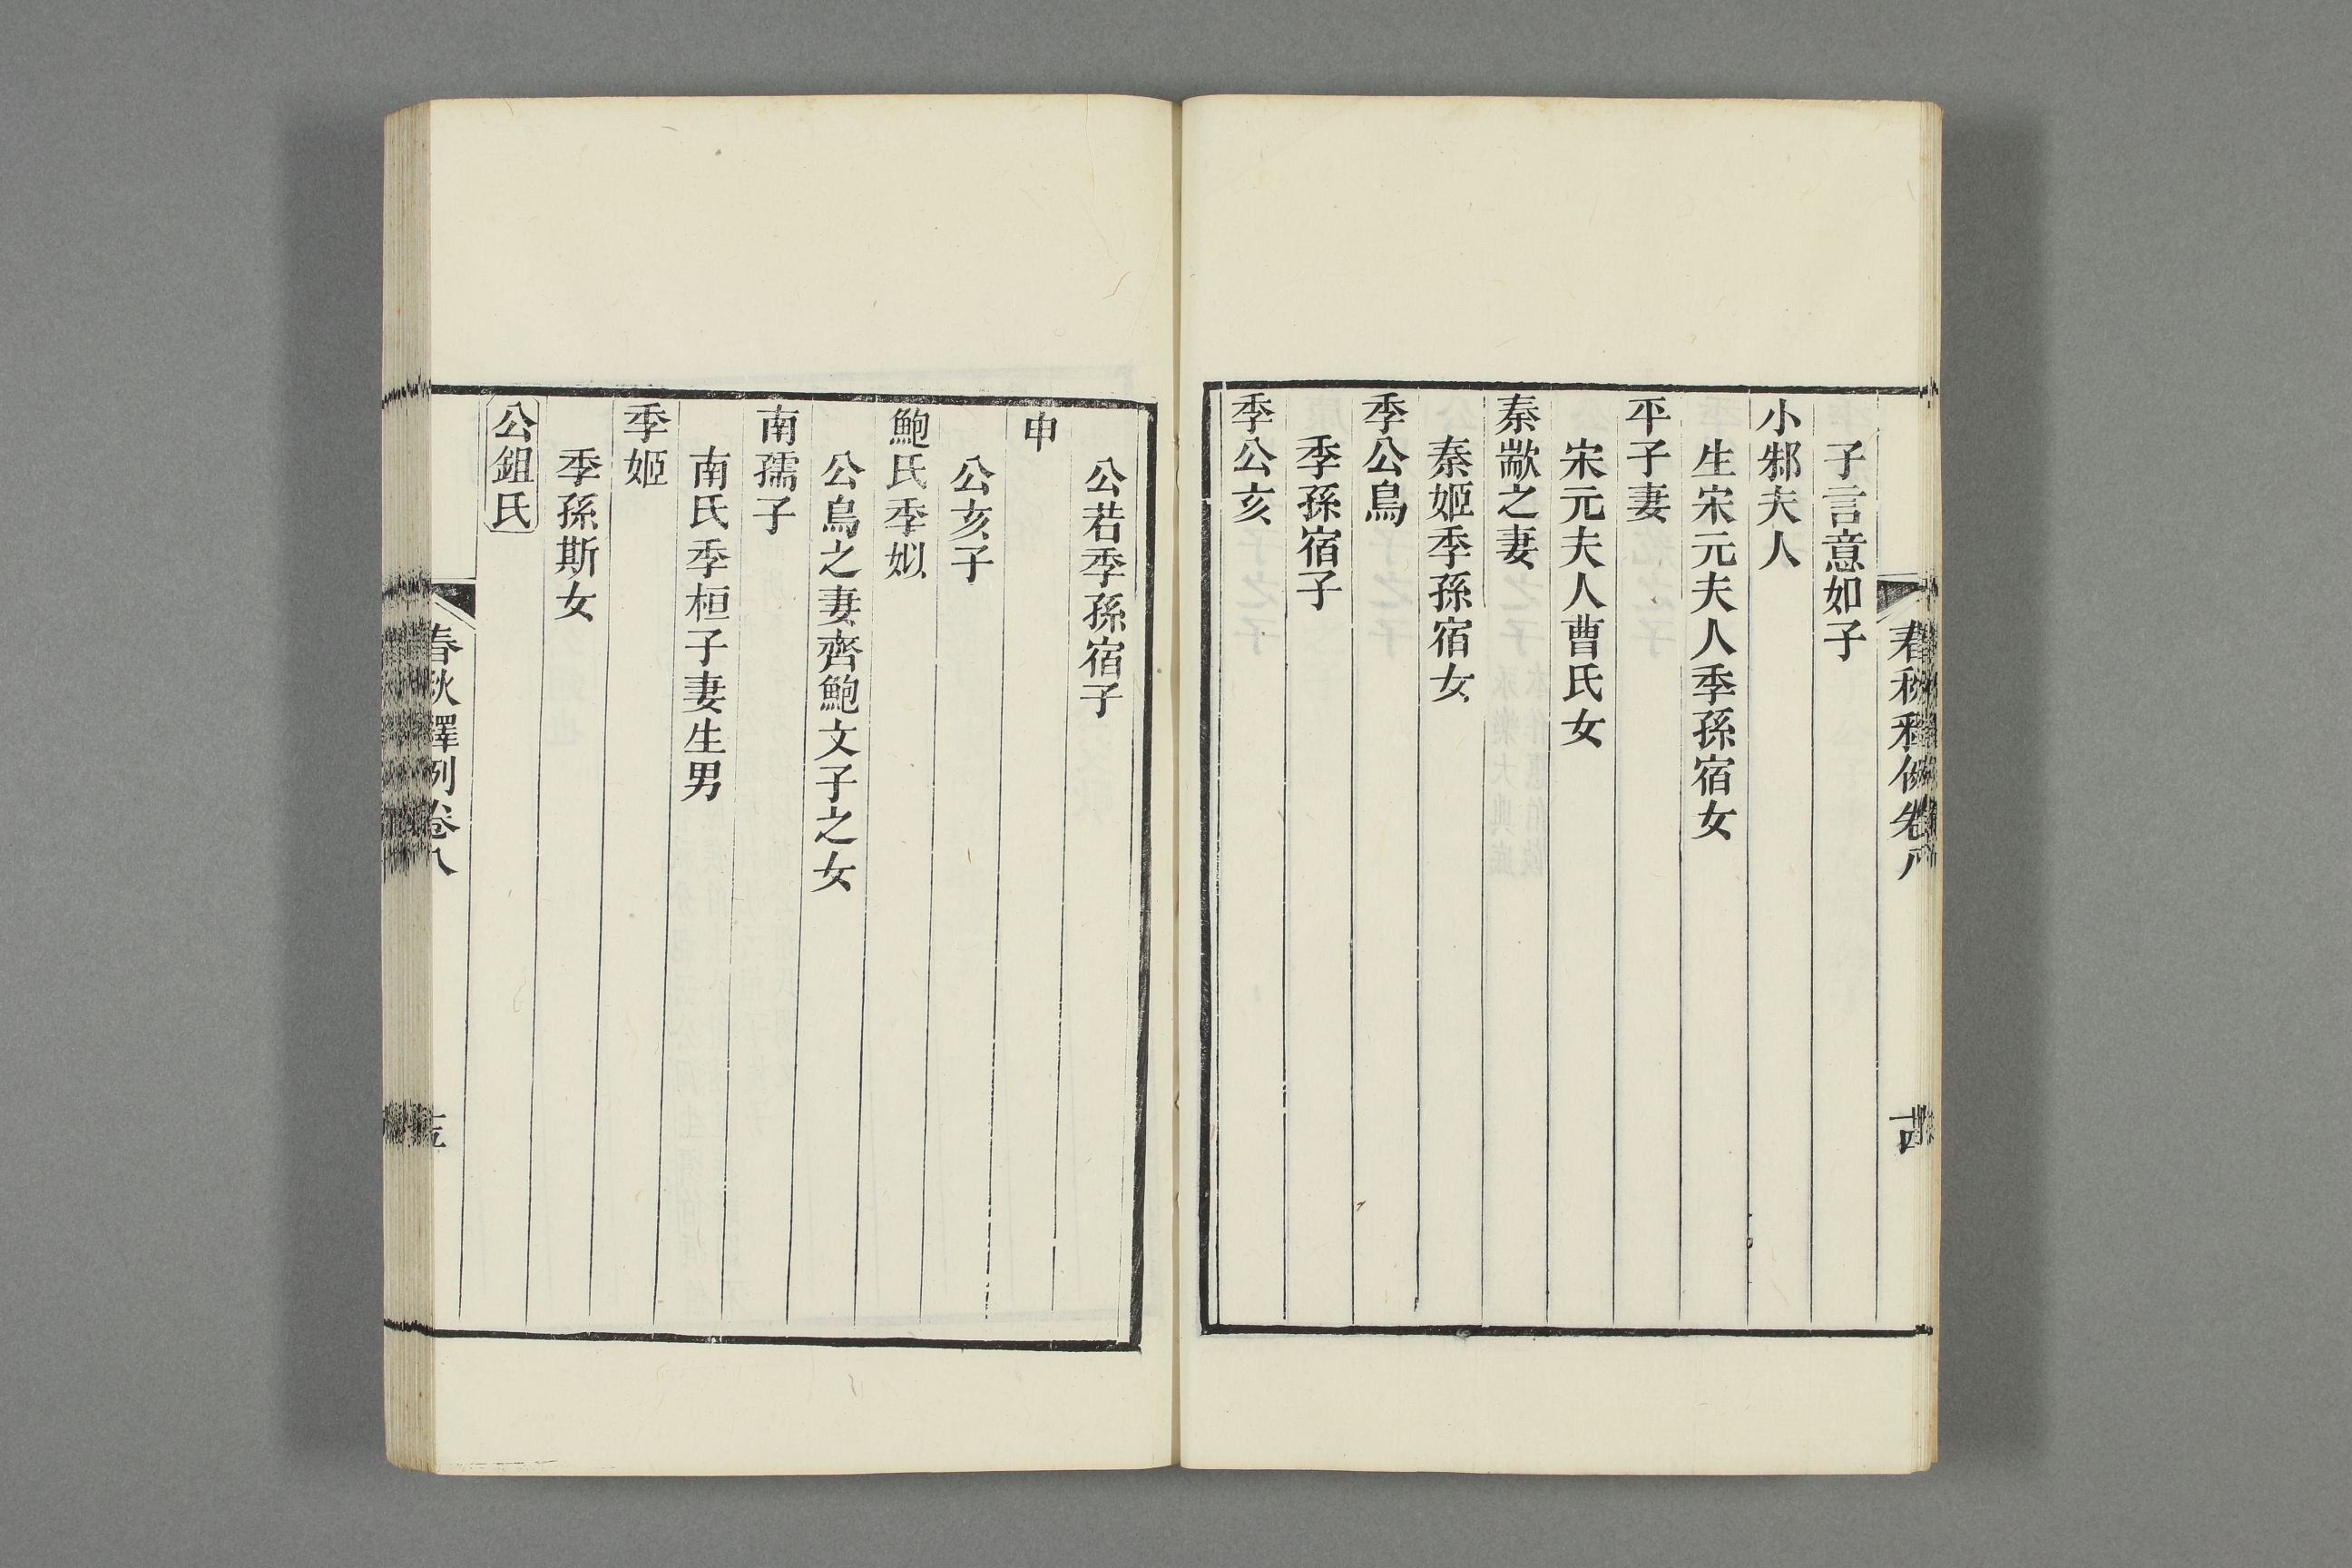 春秋釋例卷八
十四
子言意如子
小邾夫人
生宋元夫人季孫宿女
平子妻
宋元夫人曹氏女
秦歂之妻
秦姬季孫宿女
季公鳥
季孫宿子
季公亥
公若季孫宿子
申
公亥子
鮑氏季姒
公鳥之妻齊鮑文子之女
南孺子
南氏季桓子妻生男
季姬
季孫斯女
公鉏氏
春秋釋例卷八
十五